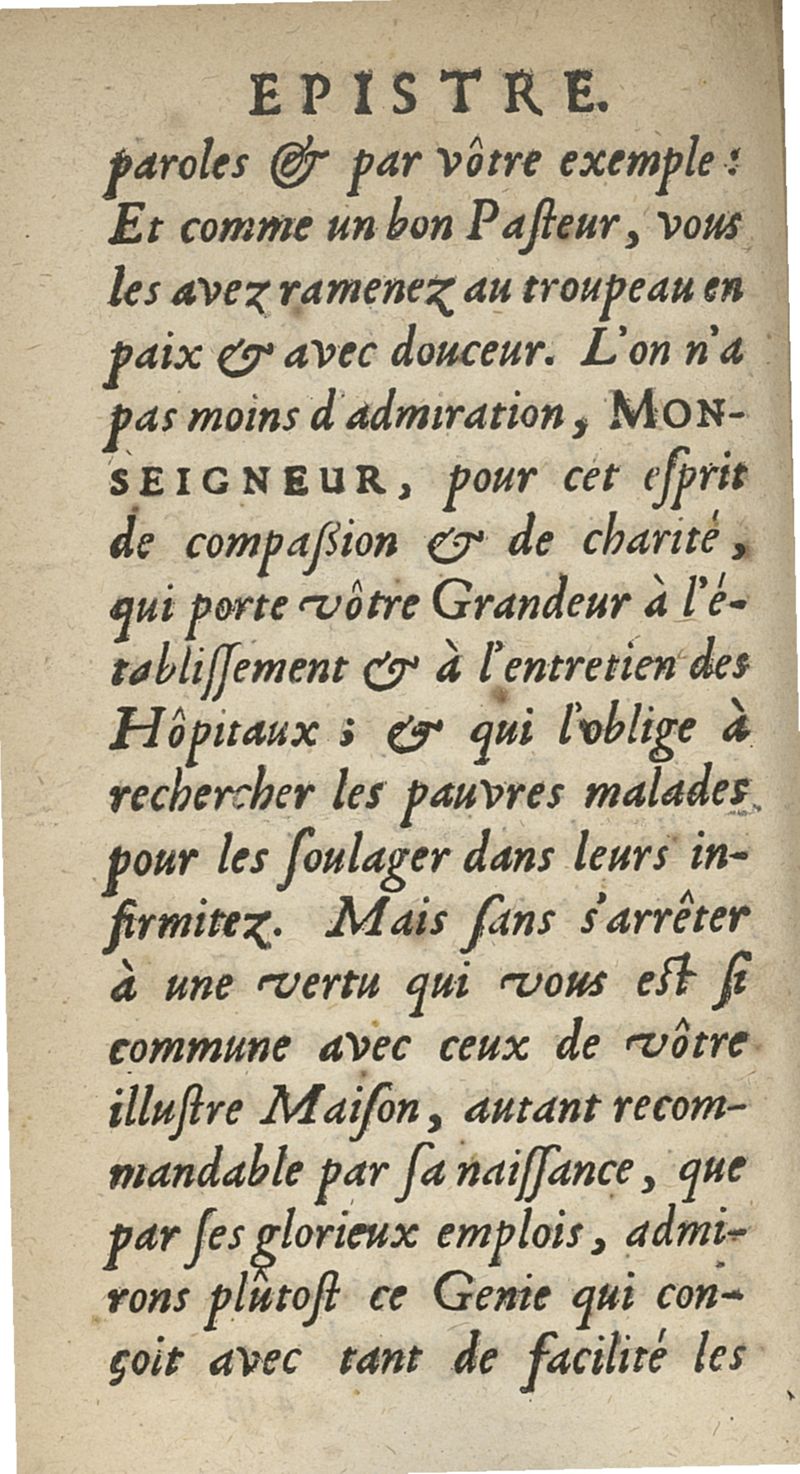 EPISTRE.
paroles & par vôtre exemple :
Et comme un bon Paſteur, vous
les avez ramenez au troupeau en
paix & avec douceur. L'on n'a
pas moins d'admiration, MON-
SEIGNEUR, pour cet eſprit
de compaßion & de charité,
qui porte vôtre Grandeur à l'é-
tabliſſement & à l'entretien des
Hôpitaux ; & qui l'oblige à
rechercher les pauvres malades
pour les ſoulager dans leurs in-
firmitez. Mais ſans s'arrêter
à une vertu qui vous eſt ſi
commune avec ceux de vôtre
illuſtre Maiſon, autant recom-
mandable par ſa naiſſance, que
par ſes glorieux emplois, admi-
rons plûtoſt ce Genie qui con-
çoit avec tant de facilité les